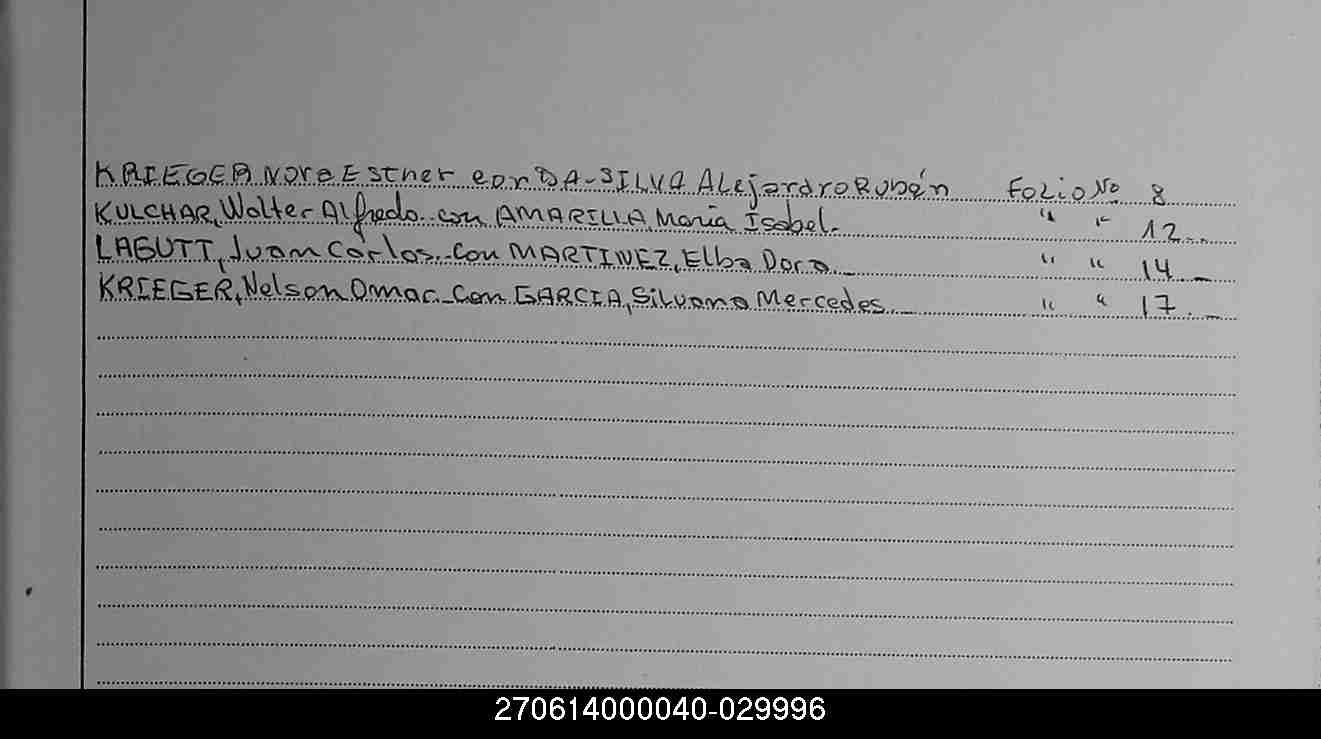 KRIEGER Nora Esther con DA-SILVA Alejandro Rubén Folio No 8
KULCHAR, Walter Alfredo con AMARILLA, María Isabel.- " " 12.-
LAGUTT, Juan Carlos con MARTINEZ, Elba Dora.- " " 14.-
KRIEGER, Nelson Omar con GARCIA, Silvana Mercedes.- " " 17.-
270614000040-029996